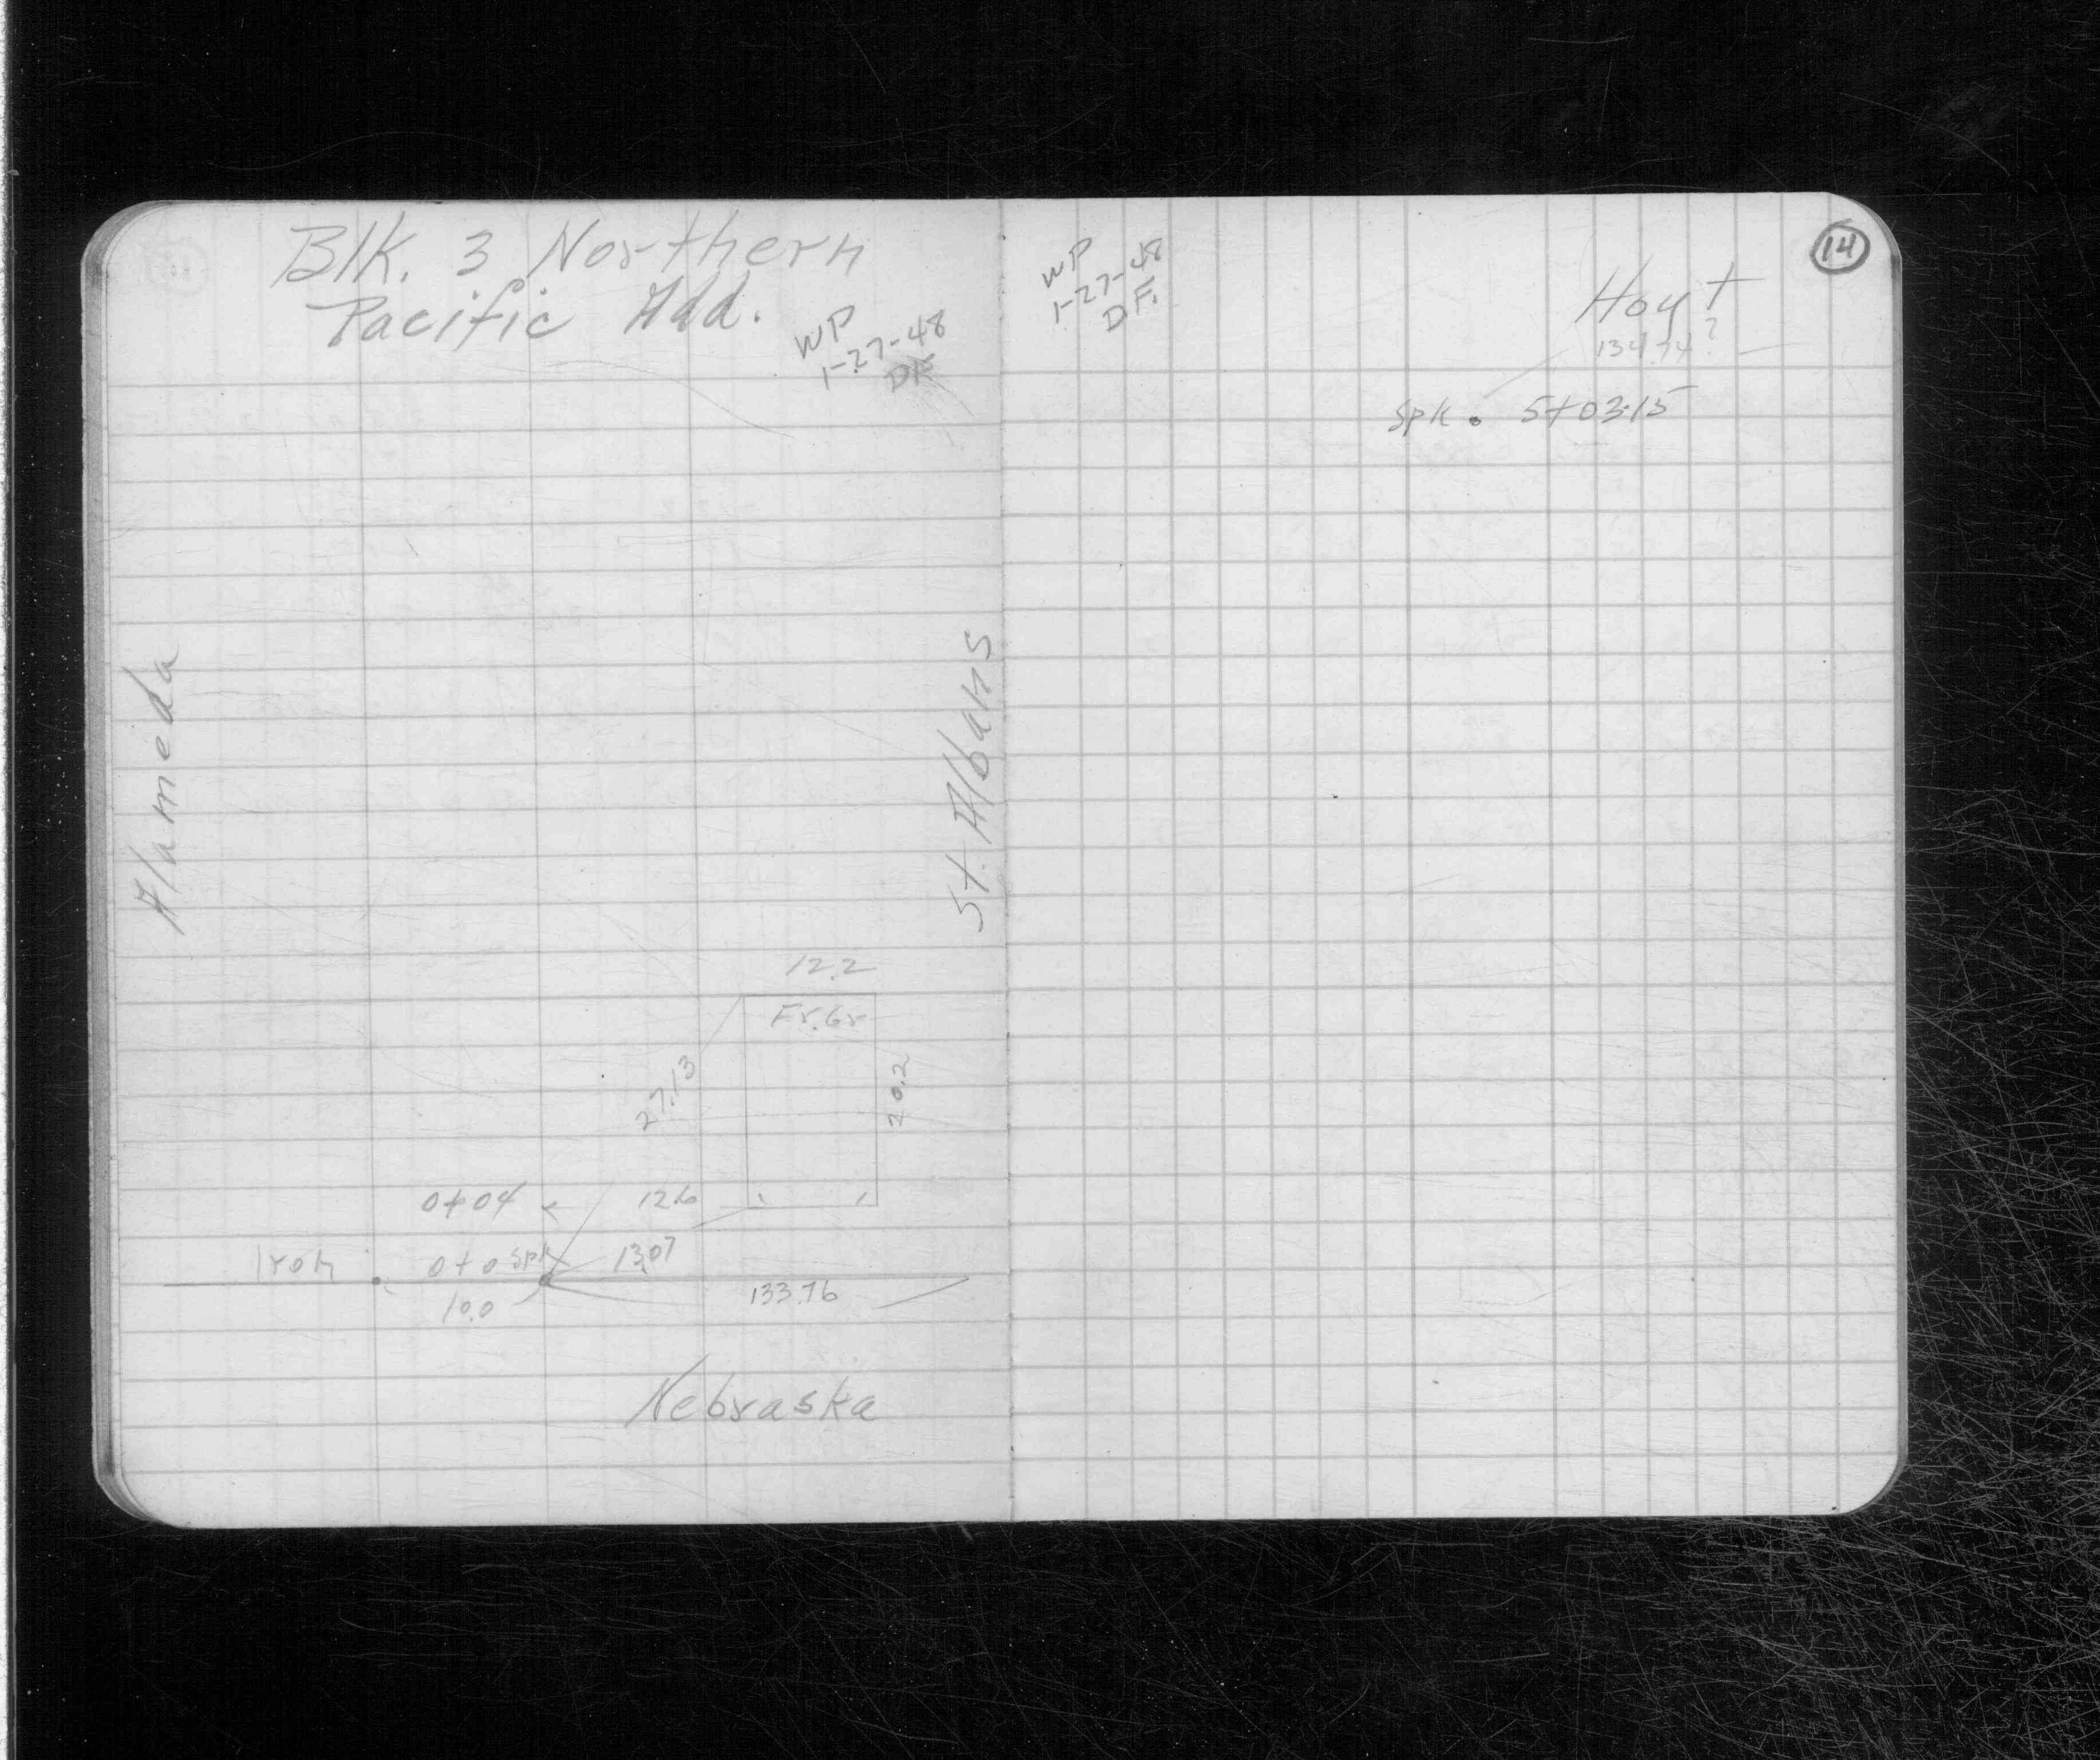 Blk. 3 Northern
Pacific Add.
WP
1-27-48
DF
Alameda
St. Albans
12.2
Fr. Gr
27.13
20.2
0+04
12.6
Iron
0+0 Spk
13.07
10.0
133.76
Nebraska
WP
1-27-48
D F.
14
Hoyt
134.74?
Spk. 5+03.15